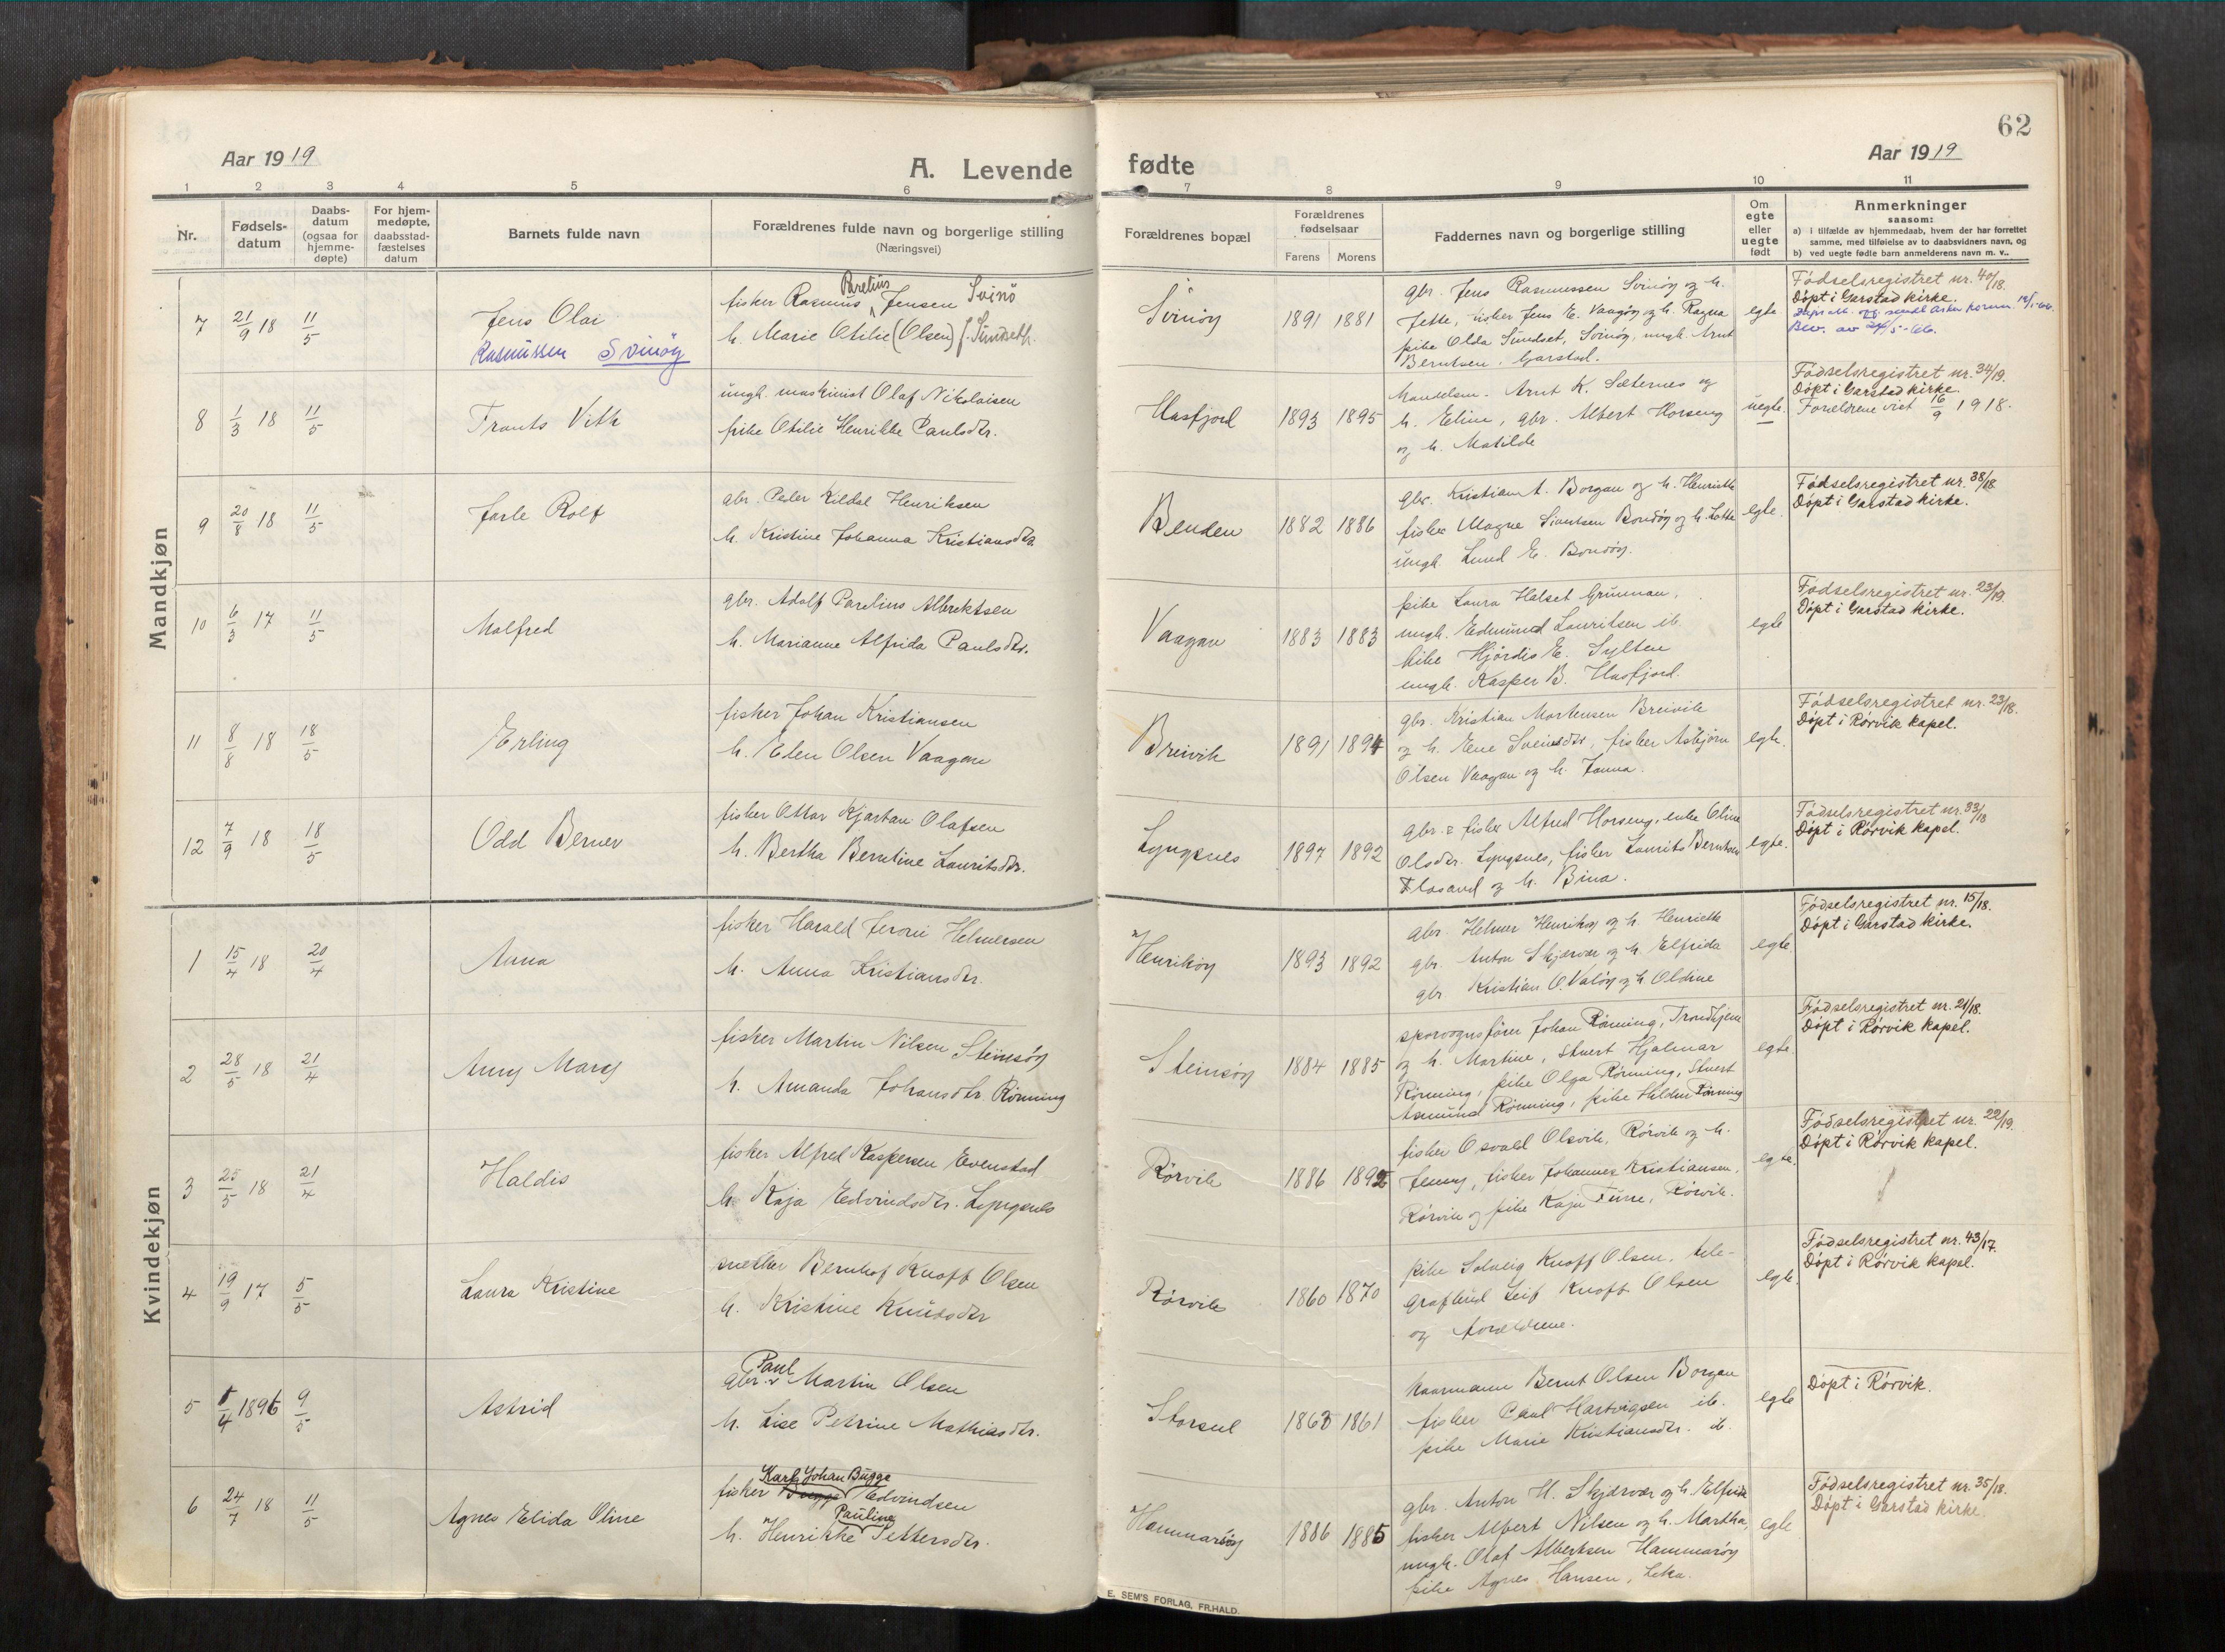 62
Aar 1919
A. Levende fødte
Aar 1919
1 2 3 4 5 6 7 8 9 10 11
Nr.
Fødsels-
datum
Daabs-
datum
(ogsaa for
hjemme-
døpte)
For hjem-
medøpte,
daabsstad-
fæstelses
datum
Barnets fulde navn
Forældrenes fulde navn og borgerlige stilling
(Næringsvei)
Forældrenes bopæl
Forældrenes
fødselsaar
Farens Morens
Faddernes navn og borgerlige stilling
Om
egte
eller
uegte
født
Anmerkninger
saasom:
a) i tilfælde av hjemmedaab, hvem der har forrettet
samme, med tilføielse av to daabsvidners navn, og
b) ved uegte fødte barn anmelderens navn m. v..
Mandkjøn
7 21/9 18 11/5
Jens Olai
Rasmussen Svinøy
fisker Rasmus Parelius Jensen Svinö
h. Marie Otilie (Olsen) f. Sundseth.
Svinøy
1891 1881
gbr. Jens Rasmussen Svinøy og h.
Jette, fisker Jens E. Vaagøy og h. Ragna
pike Olda Sundset, Svinøy, ungk. Arnt
Berntsen, Garstad.
egte
Fødselsregistret nr. 40/18.
Døpt i Garstad kirke.
8 1/3 18 11/5
Frants Vith
ungk. maskinist Olaf Nikolaisen
pike Otilie Henrikke Paulsdtr.
Hasfjord
1893 1895
Handelsm. Arnt K. Sæternes og
h. Eline, gbr. Albert Horseng
og h. Matilde
uegte.
Fødselsregistret nr. 34/19.
Døpt i Garstad kirke.
Forældrene viet 16/9 1918.
9 20/8 18 11/5
Jarle Rolf
gbr. Peder Kildal Henriksen
h. Kristine Johanna Kristiansdtr.
Benden
1882 1886
gbr. Kristian A. Borgan og h. Henriette
fisker Magne Sivertsen Bondøy og h. Lotte
ungk. Lund E. Bondøy.
egte.
Fødselsregistret nr. 38/18
Døpt i Garstad kirke.
10 6/3 17 11/5
Malfred
gbr. Adolf Parelius Albrektsen
h. Marianne Alfrida Paulsdtr.
Vaagan
1883 1883
pike Laura Halset Grunnan,
ungk. Edmund Lauritsen ib.
pike Hjördis E. Sylten
ungk. Kasper B. Hasfjord.
egte
Fødselsregistret nr. 23/19.
Døpt i Garstad kirke.
11 8/8 18 18/5
Erling
fisker Johan Kristiansen
h. Elen Olsen Vaagan
Breivik
1891 1894
gbr. Kristian Mortensen Breivik
og h. Ene Sveinsdtr, fisker Asbjørn
Olsen Vaagan og h. Janna.
egte.
Fødselsregistret nr. 23/18.
Døpt i Rørvik kapel.
12 7/9 18 18/5
Odd Berner
fisker Ottar Kjartan Olafsen
h. Bertha Berntine Lauritsdtr.
Lyngsnes
1897 1892
gbr. = fisker Alfred Horseng, enke Oline
Olsdtr. Lyngsnes, fisker Laurits Berntsen
Flosand og h. Bina.
egte.
Fødselsregistret nr. 33/18
Døpt i Rørvik kapel.
Kvindekjøn
1 15/4 18 20/4
Anna
fisker Harald Jeroni Helmersen
h. Anna Kristiansdtr.
Henrikøy
1893 1892
gbr. Helmer Henriksøy og h. Henriette
gbr. Anton Skjærvær og h. Elfrida
gbr. Kristian O. Valøy og h. Oldine
egte
Fødselsregistret nr. 15/18.
Døpt i Garstad kirke.
2 28/5 18 21/4
Anny Mary
fisker Martin Nilsen Steinsøy
h. Amanda Johansdtr. Rönning
Steinsøy
1884 1885
sporvognsfører Johan Rönning, Trondhjem
og h. Martine, stuert Hjalmar
Rönning, pike Olga Rönning, stuert
Asmund Rönning, pike Hildur Rönning
egte.
Fødselsregistret nr. 21/18.
Døpt i Rørvik kapel.
3 25/5 18 21/4
Haldis
fisker Alfred Kaspersen Evenstad
h. Kaja Edvindsdtr. Lyngsnes
Rørvik
1886 1892
fisker Osvald Olsvik, Rørvik og h.
Jenny, fisker Johannes Kristiansen,
Rørvik og pike Kaja Furre, Rørvik.
egte.
Fødselsregistret nr. 22/19.
Døpt i Rørvik kapel.
4 19/9 17 5/5
Laura Kristine
snekker Bernhof Knoff Olsen
h. Kristine Knudsdtr
Rörvik
1860 1870
pike Solveig Knoff Olsen, tele-
grafbud Leif Knoff Olsen
og forældrene.
egte.
Fødselsregistret nr. 43/17.
Døpt i Rørvik kapel.
5 1/4 1896 9/5
Astrid
gbr. Paul Martin Olsen
h. Lise Petrine Mathiasdtr.
Storsul
1865 1861
kaarmann Bernt Olsen Borgan
fisker Paul Hartvigsen ib.
pike Marie Kristiansdtr. ib.
egte
Døpt i Rørvik.
6 24/7 18 11/5
Agnes Elida Oline
fisker Karl Johan Bugge Edvindsen
h. Henrikke Pauline Pettersdtr.
Hammarøy
1886 1885
gbr. Anton H. Skjærvær og h. Elfride
fisker Albert Nilsen og h. Martha,
ungk. Olaf Albertsen Hammarøy
pike Agnes Hansen, Leka.
egte
Fødselsregistret nr. 35/18.
Døpt i Garstad kirke.
E. SEM'S FORLAG, FR.HALD.